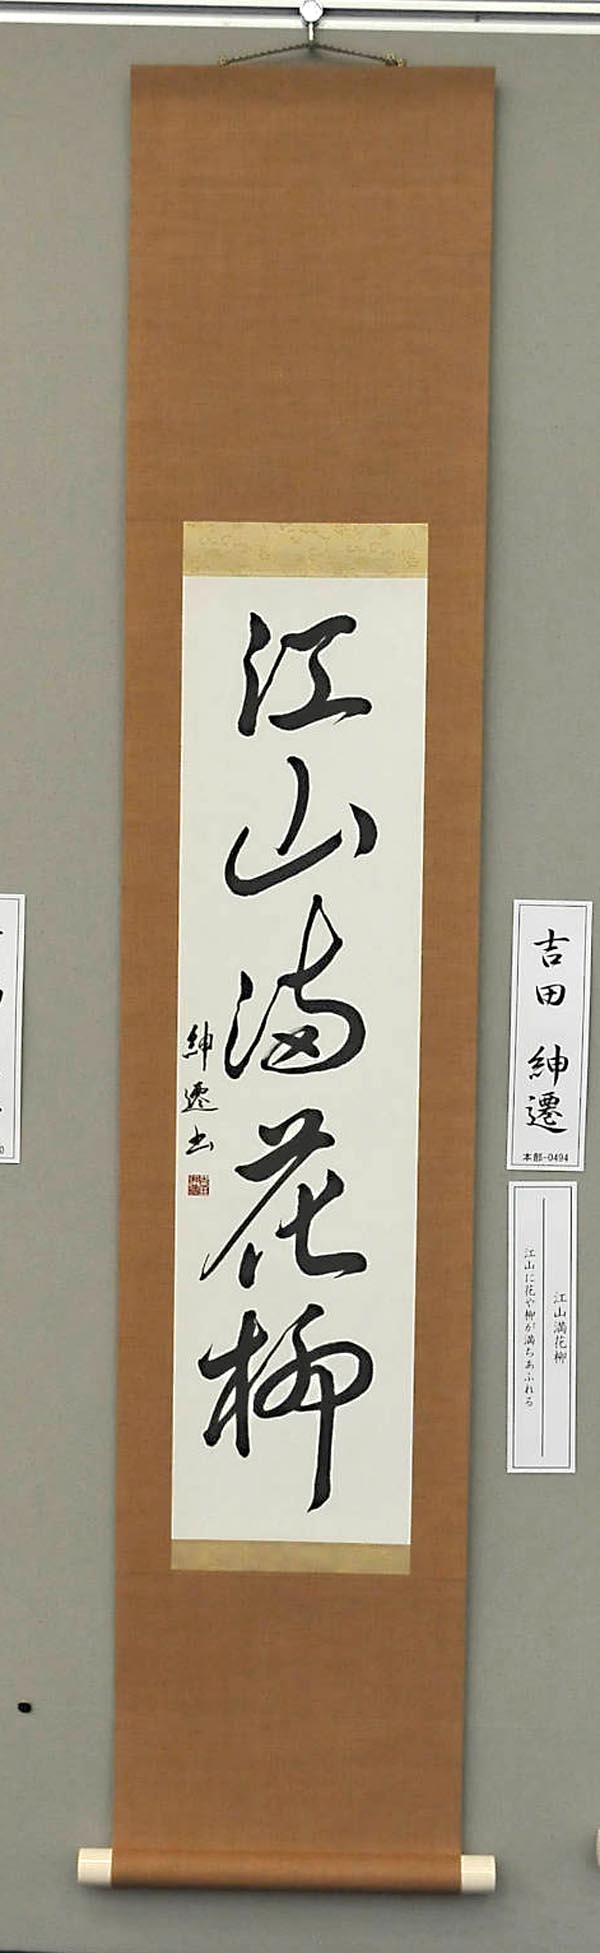 江山満花柳
紳遷書
吉田 紳遷
本部-0494
江山満花柳
江山に花や柳が満ちあふれる